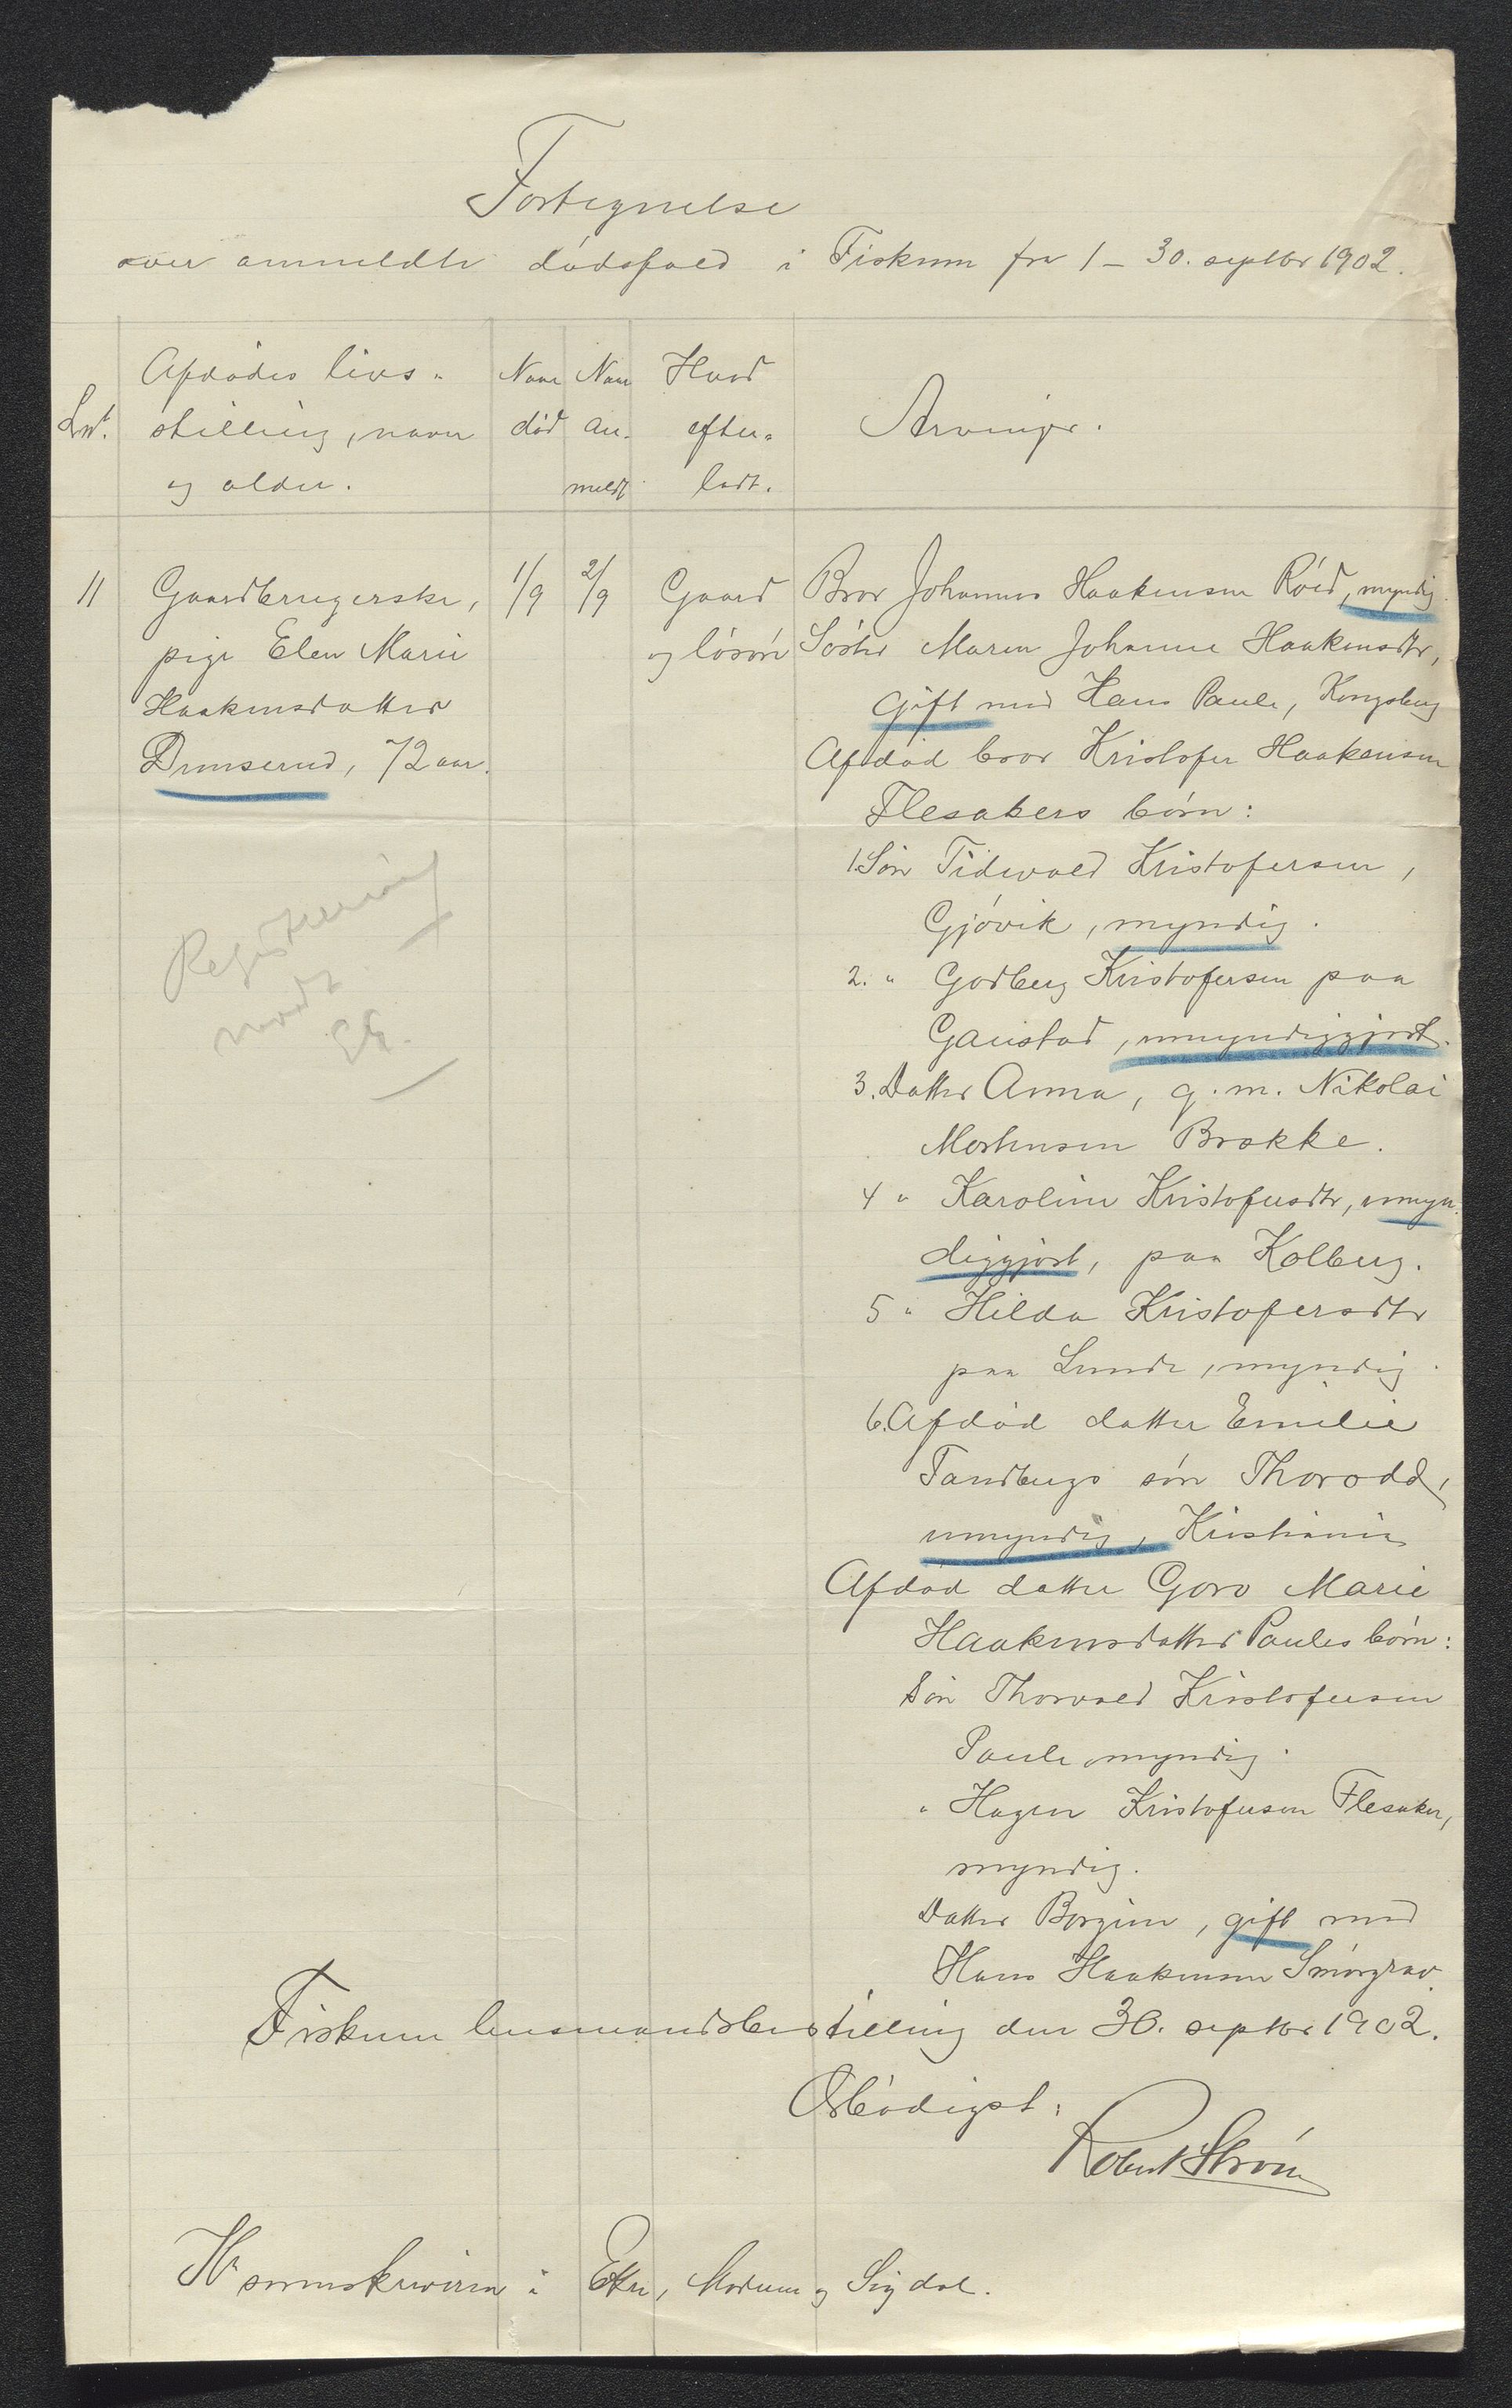 Fortegnelse
over anmeldte dødsfald i Fiskum fra 1 – 30. septbr 1902.
Lnr.
Afdødes livs-
stilling, navn
og alder.
Naar
død
Naar
an-
meldt
Hvad
efter-
ladt.
Arvinger.
11
Gaardbrugerske,
pige Elen Marie
Haakensdatter
Dunserud, 72 aar.
1/9
2/9
Gaard
og løsøre
Bror Johannes Haakensen Röed, myndig.
Söster Maren Johanne Haakensdtr,
gift med Hans Paule, Kongsberg
Afdöd bror Kristofer Haakensen
Flesakers börn:
1. Sön Tidevald Kristofersen,
Gjövik, myndig.
2. " Godberg Kristofersen paa
Gaustad, umyndiggjort.
3. Datter Anna, g. m. Nikolai
Mortensen Brække.
4 " Karoline Kristofersdtr, umyn-
diggjort, paa Kolberg.
5 " Hilda Kristofersdtr
paa Lunde, myndig.
6. Afdöd datter Emilie
Tandbergs sön Thorodd,
umyndig, Kristiania
Afdöd datter Goro Marie
Haakensdatter Paules börn:
Sön Thorvald Kristofersen
Paule myndig.
" Hagen Kristofersen Flesaker,
myndig.
Datter Borgine, gift med
Hans Haakensen Smörgrav.
Registrering
mødt
Fiskum lensmandsbestilling den 30. septbr 1902.
Ærbødigst:
Robert Strøm
Hr sorenskriveren i Eker, Modum og Sigdal.